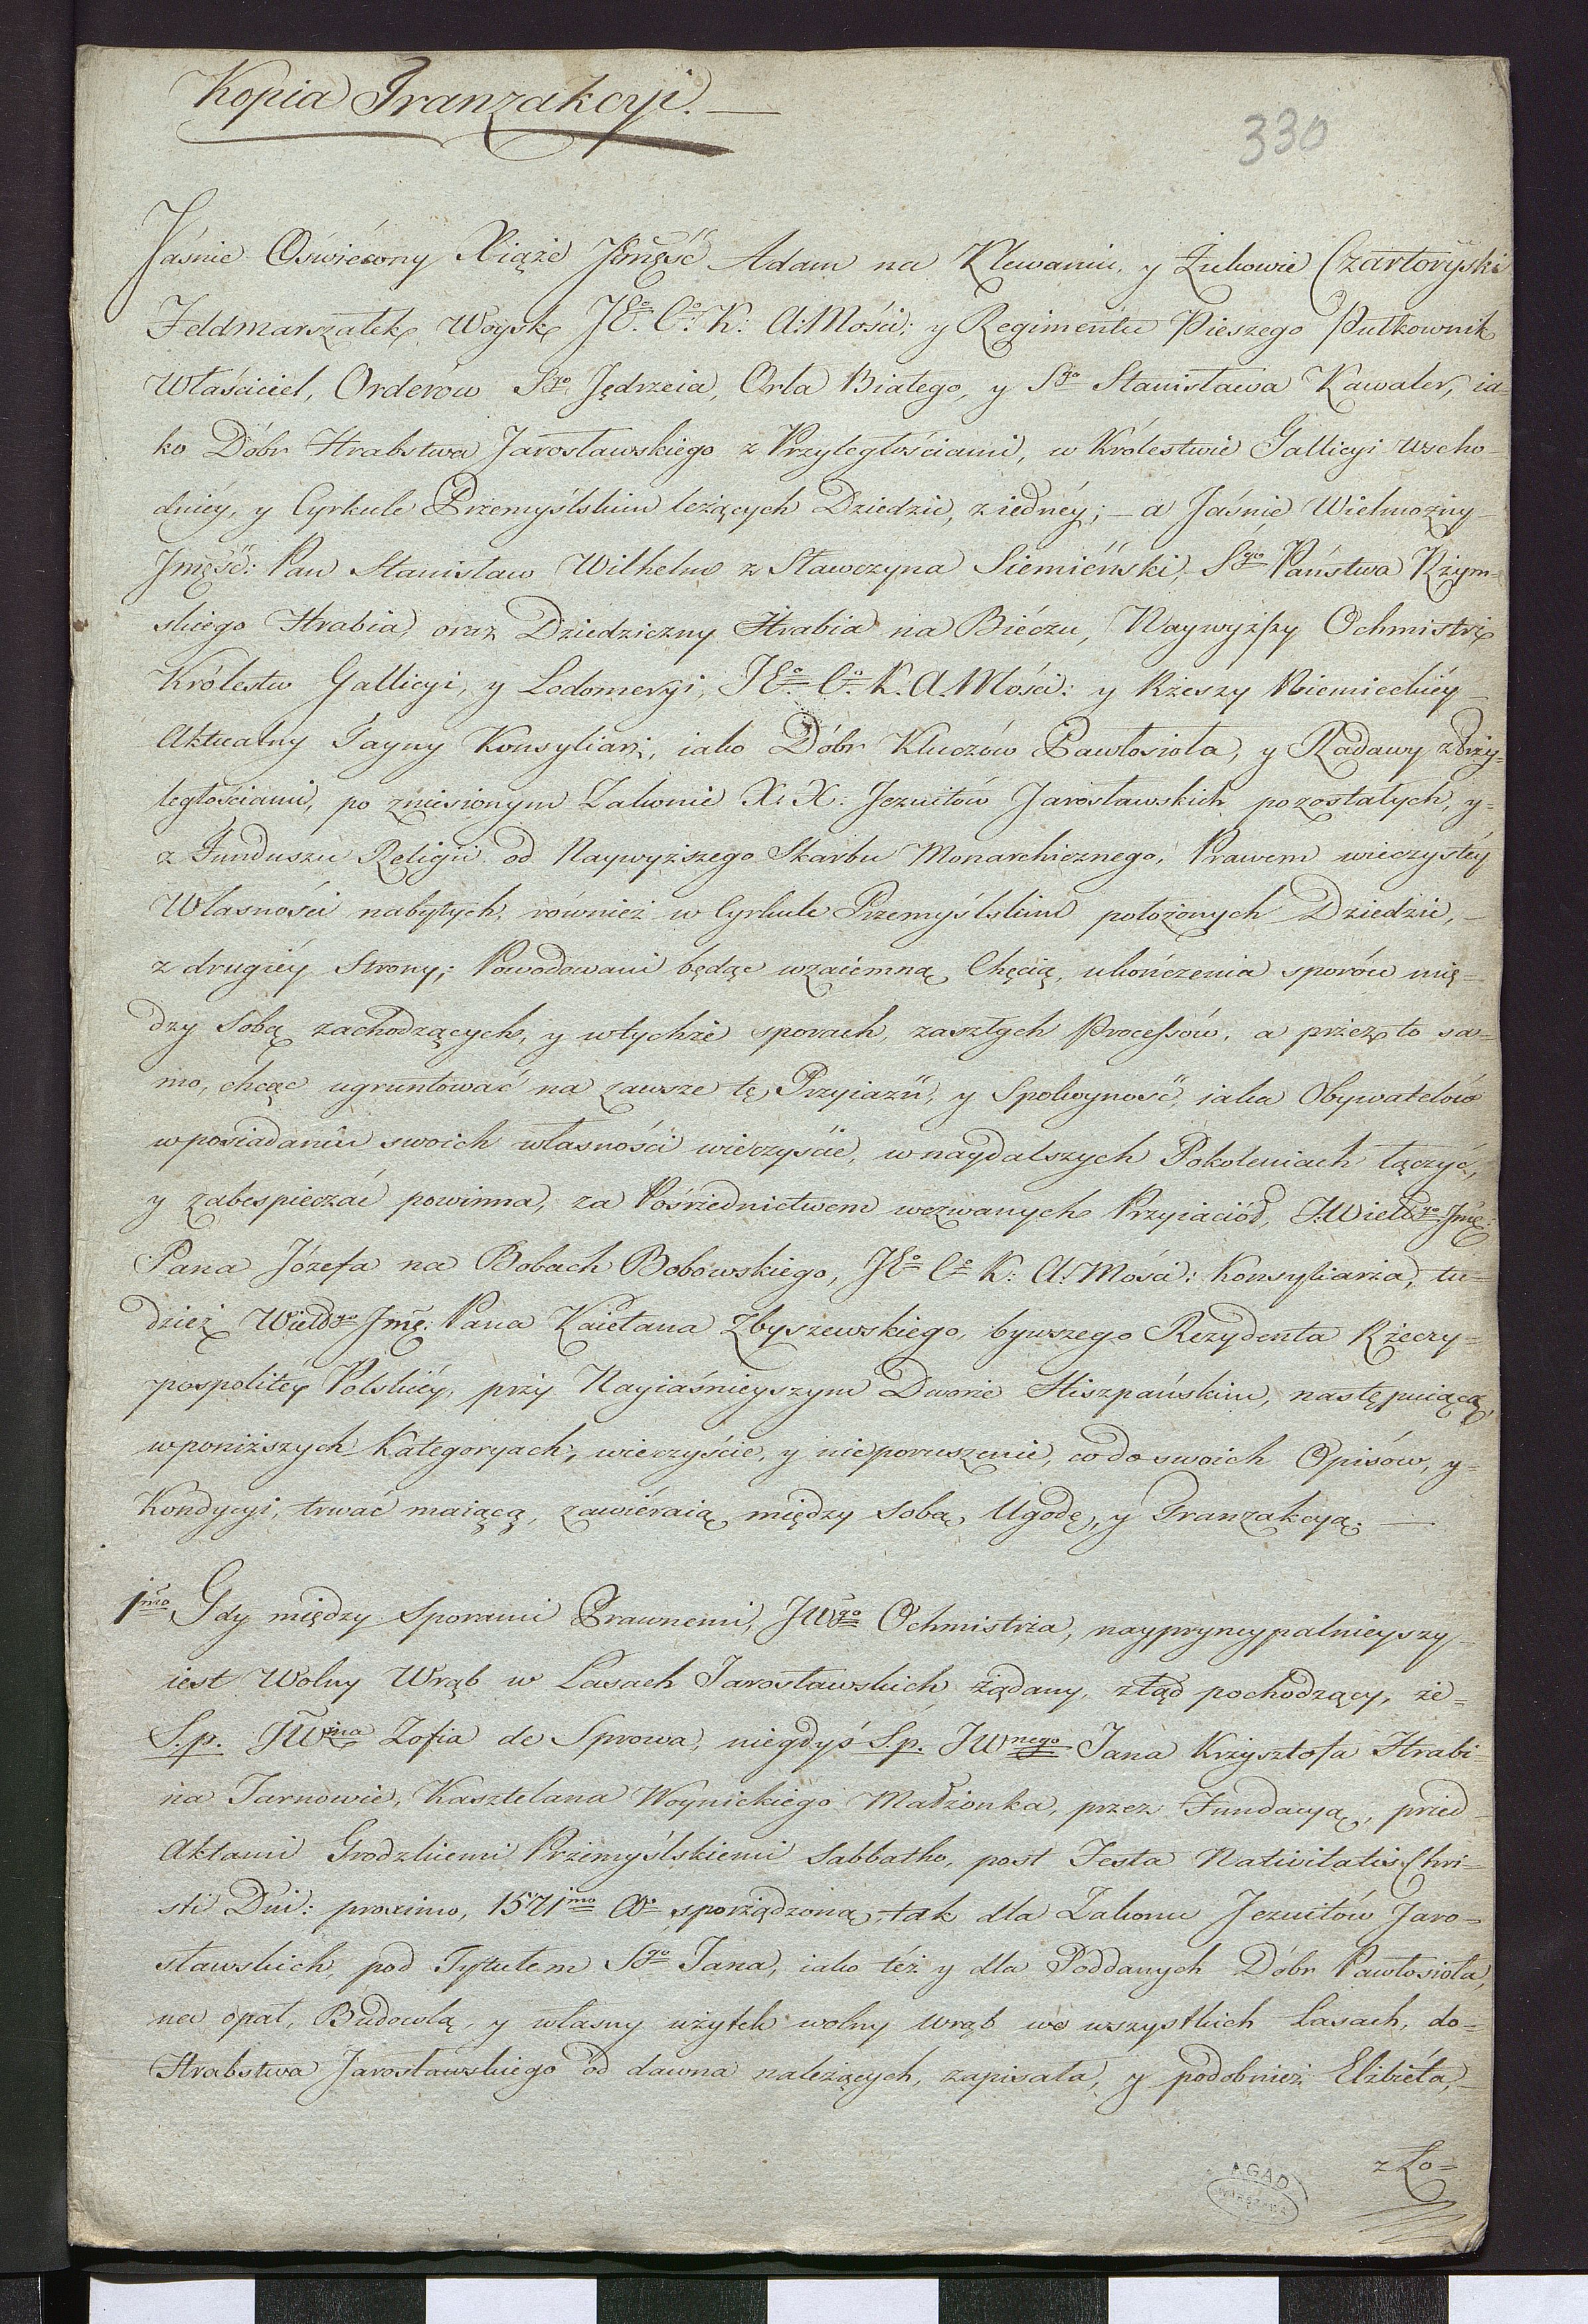 Kopia Tranzakcyi. —
330
Jáśnie Oświécony Xiąże Jmę̃ść Adam na Klewaniu, y Żukowie Czartoryiski
Feldmarszałek Woysk JEº. Cº. K: A: Mości: y Regimentu Pieszego Pułkownik
Właściciel, Orderów Sgo Jędrzeia, Orła Białego, y Sgo Stanisława Kawaler, ia-
ko Dóbr Hrabstwa Jarosławskiego z Przyległościami, w Królestwie Gallicyi wscho-
dniéy, y Cyrkule Przemyślskim leżących Dziedzic, z iednéy; – a Jáśnie Wielmożny –
Jmęść: Pan Stanisław Wilhelm z Sławczyna Siemiéński, Sgo Państwa Rzym-
skiego Hrabia, oraz Dziedziczny Hrabia na Biéczu, Naywyższy Ochmistrz
Królestw Gallicyi, y Lodomeryi, JEº. Cº. K. A. Mości: y Rzeszy Niemieckiéy –
Aktualny Tayny Konsyliarz, iako Dóbr Kluczów Pawłosioła, y Radawy z Przy-
ległościami, po zniesionym Zakonie X: X: Jezuitów Jarosławskich pozostałych, y-
z Funduszu Religii od Naywyższego Skarbu Monarchicznego, Prawem wieczystéy
Własności nabytych, również w Cyrkule Przemyślskim położonych Dziedzic, –
z drugiéy Strony; Powodowani będąc wzaiémną Chęcią, ukończenia sporów mię-
dzy sobą zachodzących, y w tychże sporach, zaszłych Processów, a przez to sa-
mo, chcąc ugruntować na zawsze tę Przyiaźń, y Spokoyność, iaka Obywatelów
w posiadaniu swoich własności wieczyście, w naydalszych Pokoleniach łączyć,
y zabespieczać powinna, za Pośrzednictwem wezwanych Przyiaciół, J: Wielbgo Jmę:
Pana Józefa na Bobach Bobowskiego, JEº Cº K: A: Mości: Konsyliarza, tu-
dzież Wielbgo Jmę: Pana Kaietana Zbyszewskiego, bywszego Rezydenta Rzeczy-
pospolitéy Polskiéy, przy Nayiaśnieyszym Dworze Hiszpańskim, następuiącą,
w poniższych Kategoryach, wieczyście, y nieporuszenie, co do swoich Opisów, y-
Kondycyi, trwać maiącą, zawiéraią między sobą, Ugodę, y Tranzakcyą: —
1mo Gdy między Sporami Prawnemi, JWgo Ochmistrza, naypryncypalnieyszy –
iest Wolny Wrąb w Lasach Jarosławskich żądany, ztąd pochodzący, że-
S.p. JWna Zofia de Sprowa, niegdyś S.p. JWnego Jana Krzysztofa Hrabi-
na Tarnowie, Kasztelana Woynickiego Małżonka, przez Fundacyą, przed-
Aktami Grodzkiemi Przemyślskiemi Sabbatho, post Festa Nativitatis Chri-
sti Dñi: proximo, 1571mo Aº sporządzoną, tak dla Zakonu Jezuitów Jaro-
sławskich, pod Tytułem Sgo Jana, iako téż y dla Poddanych Dóbr Pawłosioła,
na opał, Budowlą, y własny użytek wolny wrąb we wszystkich Lasach, do-
Hrabstwa Jarosławskiego od dawna należących, zapisała, y podobnież Elżbiéta, –
z Ło=
AGAD
WARSZAWA